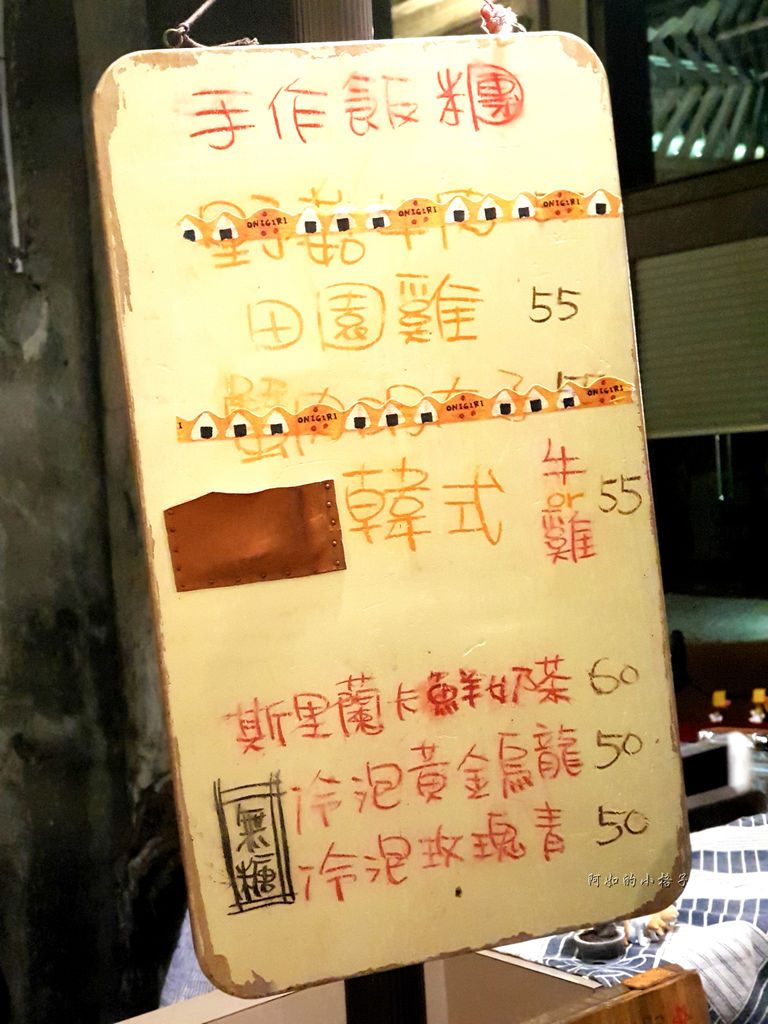 手作飯糰
ONIGIRI ONIGIRI ONIGIRI
田園雞 55
ONIGIRI ONIGIRI ONIGIRI
韓式 牛or雞 55
斯里蘭卡鮮奶茶 60
無糖 冷泡黃金烏龍 50
冷泡玫瑰青 50
阿如的小格子